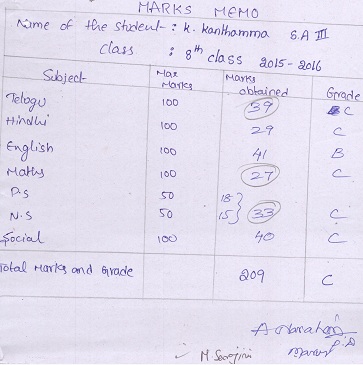 MARKS MEMO
Name of the Student : K. Kanthamma S.A III
Class : 8th class 2015-2016
Subject Max Marks Marks obtained Grade
Telogu 100 39 C
Hindhi 100 29 C
English 100 41 B
Maths 100 27 C
P.S 50 18
N.S 50 15 } 33 C
Social 100 40 C
Total Marks and Grade 209 C
M. Sarojini